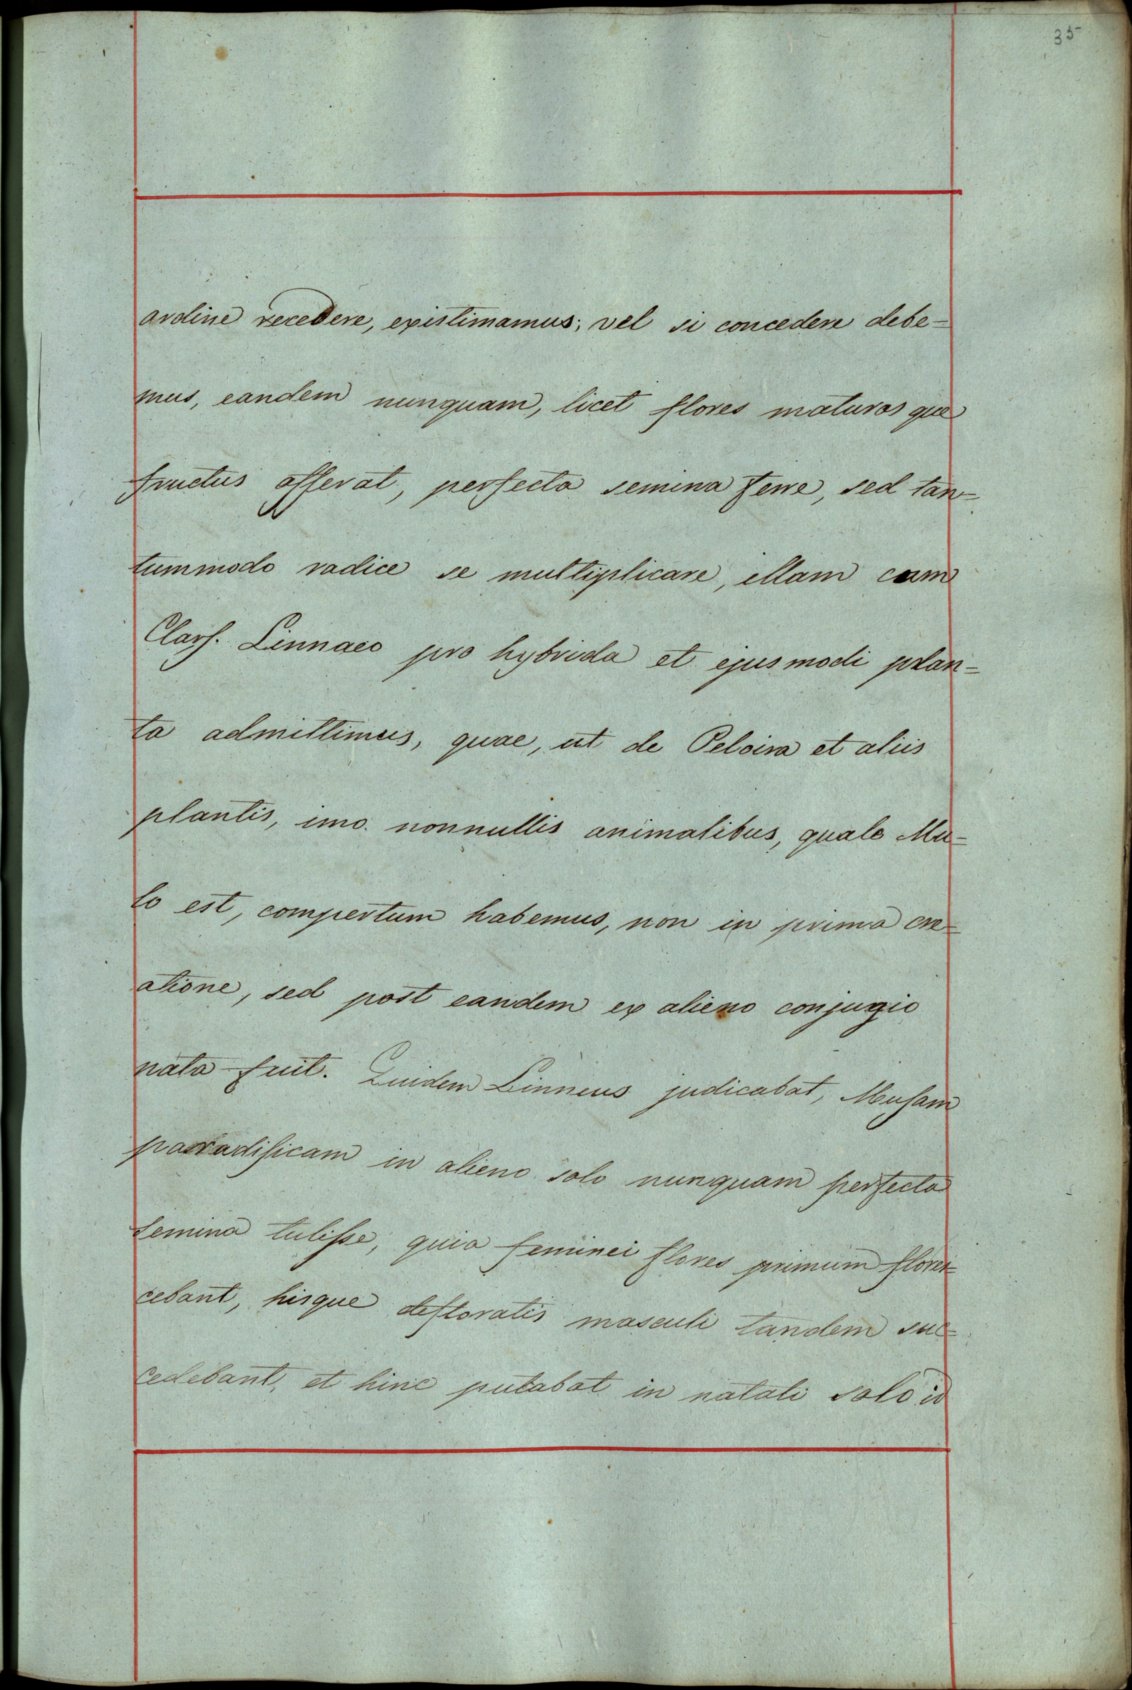 35
ordine recedere, existimamus; vel si concedere debe=
mus, eandem nunquam, licet flores maturos que
fructus afferat, perfecta semina ferre, sed tan=
tummodo radice se multiplicare, illam cum
Clarſ. Linnaeo pro hybrida et ejusmodi plan=
ta admittimus, quae, ut de Peloira et aliis
plantis, imo nonnullis animalibus, quale Mu=
lo est, compertum habemus, non in prima cre=
atione, sed post eandem ex alieno conjugio
nata fuit. Quidem Linneus judicabat, Muſam
paradiſicam in alieno solo nunquam perfecta
semina tuliſse, quia feminei flores primum flores=
cebant, hisque defloratis masculi tandem suc=
cedebant, et hinc putabat in natali solo id